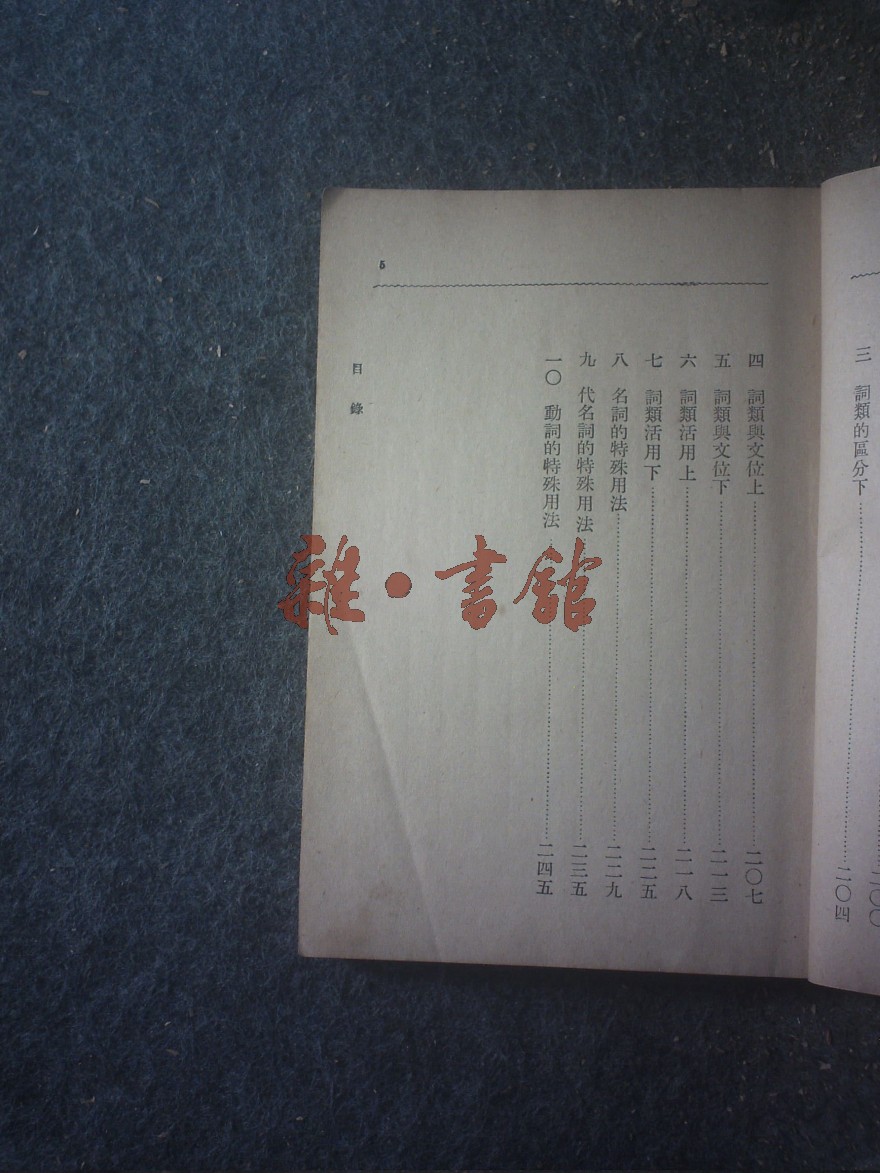 二〇〇
三 詞類的區分下 二〇四
5
四 詞類與文位上 二〇七
五 詞類與文位下 二一三
六 詞類活用上 二一八
七 詞類活用下 二二五
八 名詞的特殊用法 二二九
九 代名詞的特殊用法 二三五
一〇 動詞的特殊用法 二四五
目錄
雜·書館